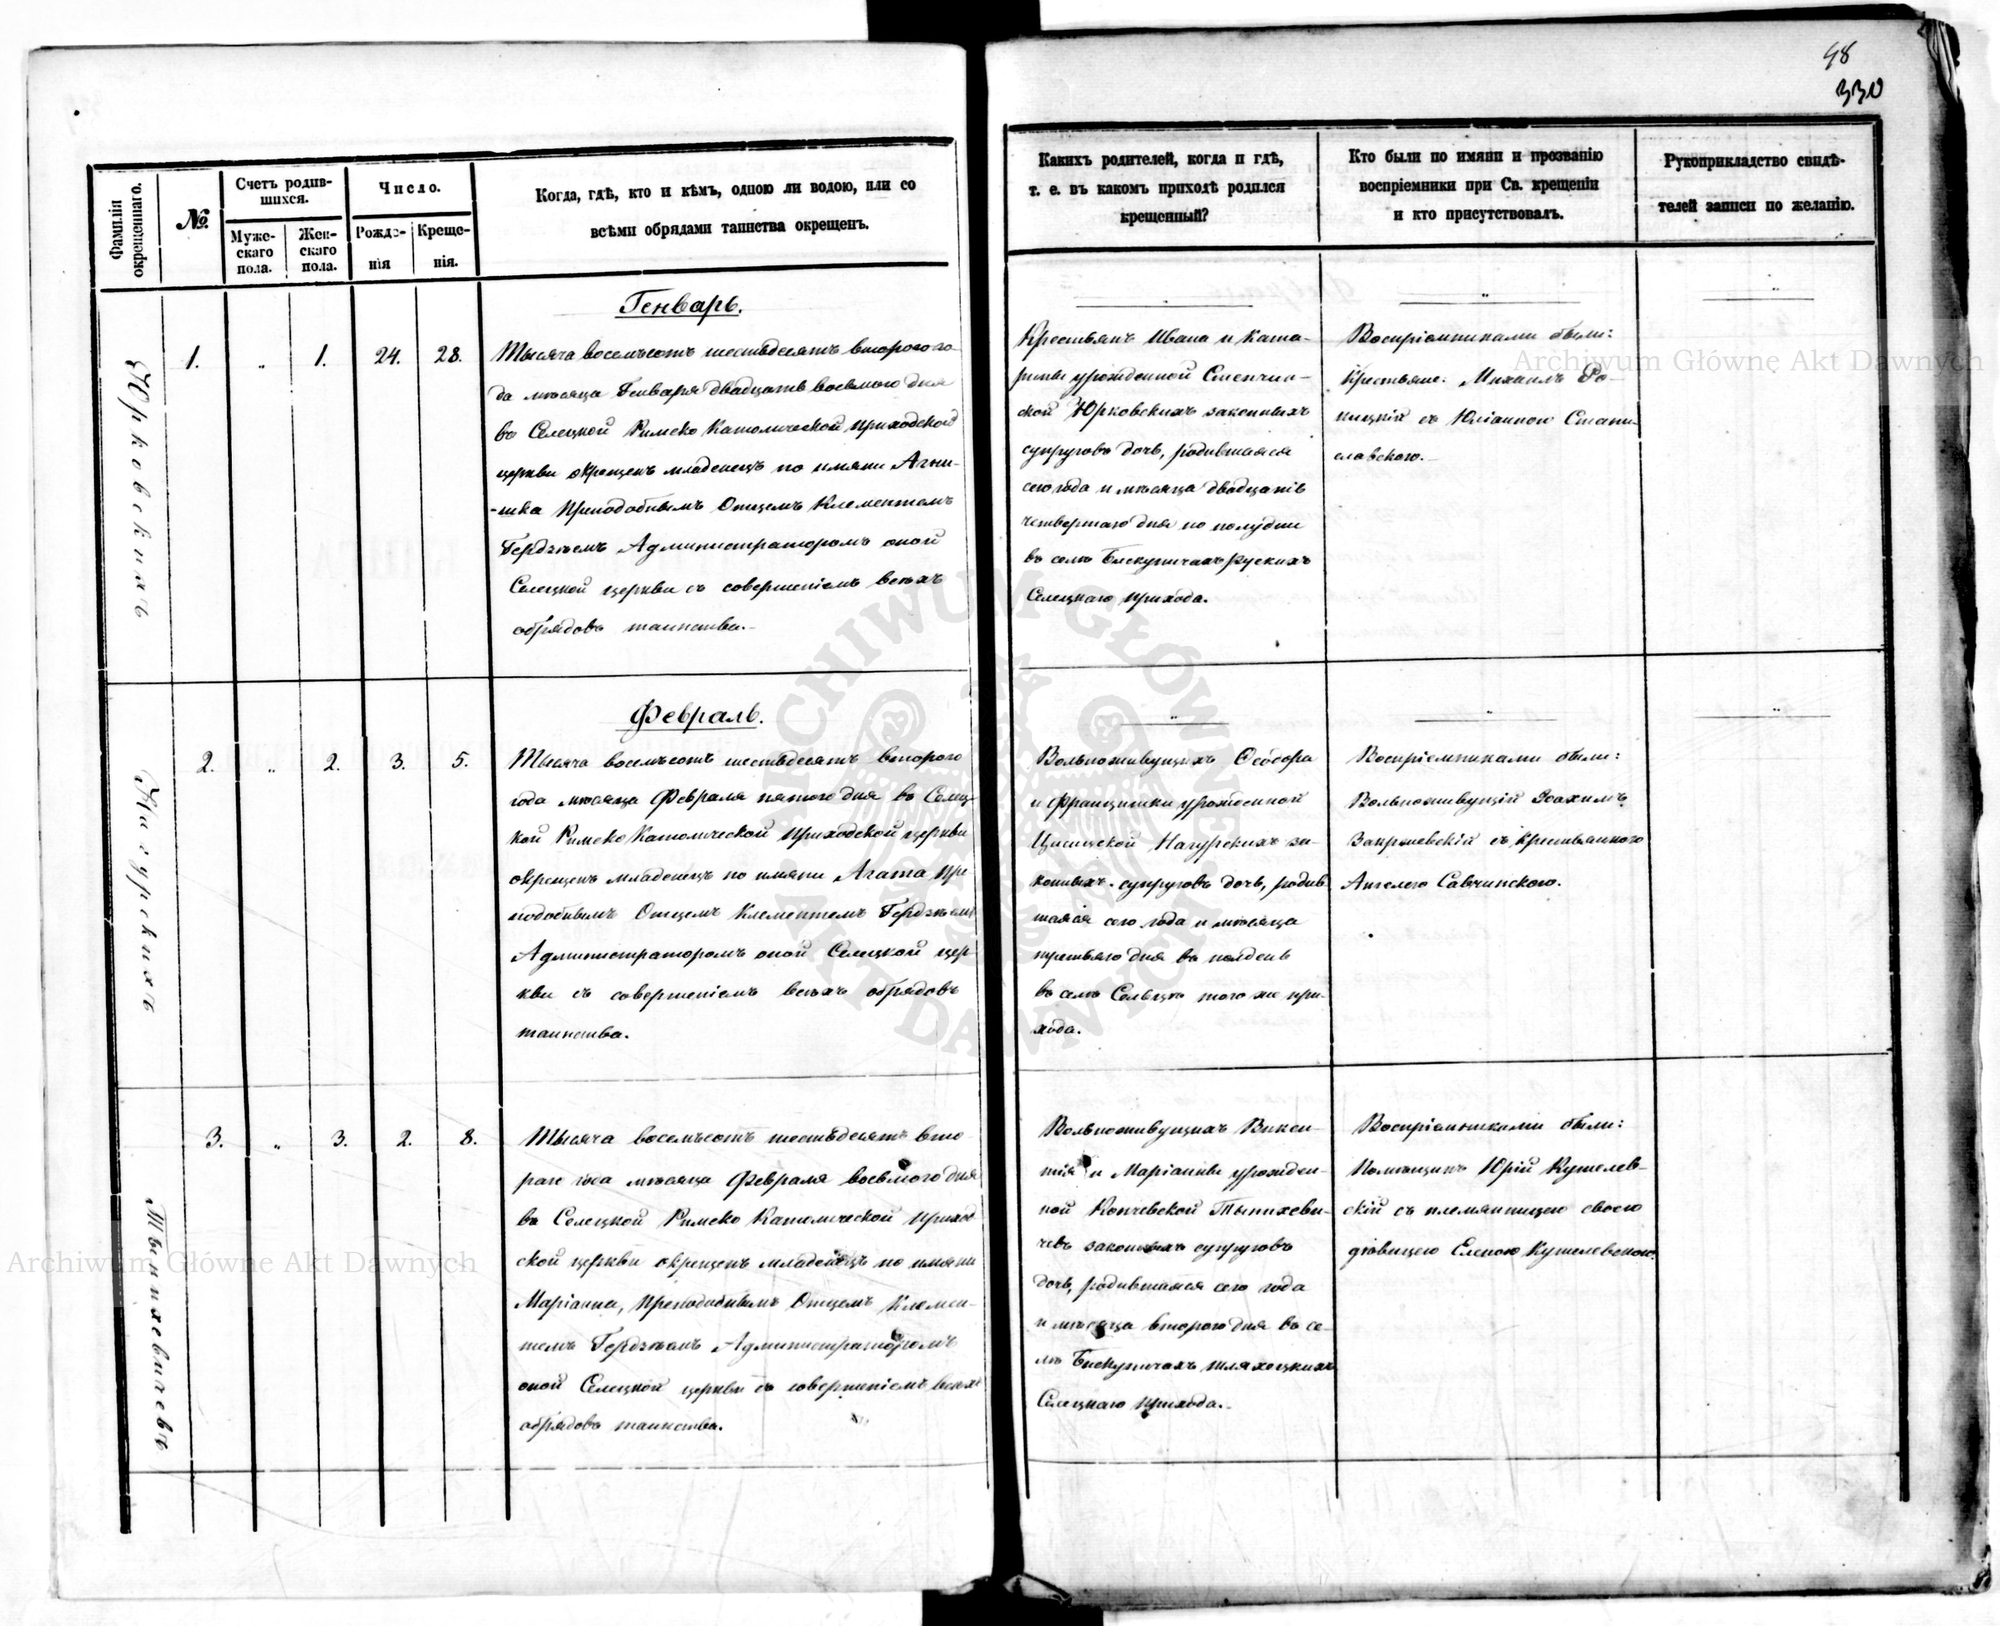 48
330
Фамилія окрещеннаго.
№
Счетъ родив-
шихся.
Муже-
скаго
пола.
Жен-
скаго
пола.
Число.
Рожде-
нія
Креще-
нія.
Когда, гдѣ, кто и кѣмъ, одною ли водою, или со
всѣми обрядами таинства окрещенъ.
Какихъ родителей, когда и гдѣ,
т. е. въ какомъ приходѣ родился
крещенный?
Кто были по имяни и прозванію
воспріемники при Св. крещеніи
и кто присутствовалъ.
Рукоприкладство свидѣ-
телей записи по желанію.
Юрковскихъ
1. „ 1. 24. 28.
Генварь.
Тысяча восемъсотъ шестьдесятъ второго го-
да мѣсяца Генваря двадцать восьмого дня
въ Селецкой Римско Католической приходской
церкви окрещенъ младенецъ по имяни Агни-
-шка Преподобнымъ Отцемъ Клементемъ
Администраторомъ оной
Селецкой церкви съ совершеніемъ всѣхъ
обрядовъ таинства.-
„
Крестьянъ Ивана и Ката-
рины урожденной
Юрковскихъ законныхъ
супруговъ дочь, родившаяся
сего года и мѣсяца двадцать
четвертаго дня по полудни
въ селѣ Бискупичахъ рускихъ
Селецкаго прихода.
„
Воспріемниками были:
Крестьяне: Михаилъ Ро-
ницкій съ Юліанною Стани-
славскою.-
„
Нагурскихъ
2. „ 2. 3. 5.
Февраль.
Тысяча восемъсотъ шестьдесятъ второго
года мѣсяца Февраля пятого дня въ Селец-
кой Римско Католической приходской церкви
окрещенъ младенецъ по имяни Агата Пре
подобнымъ Отцемъ Клементемъ
Администраторомъ оной Селецкой цер-
кви съ совершеніемъ всѣхъ обрядовъ
таинства.
„
Вольноживущихъ Ѳеодора
и Францишки урожденной
Нагурскихъ за-
конныхъ супруговъ дочь, родив
шаяся сего года и мѣсяца
третьяго дня въ полдень
въ селѣ Сельцѣ того же при-
хода.
„
Воспріемниками были:
Вольноживущій Іоахимъ
Закржевскій съ крестьянкою
Ангелею Савчинскою.
„
Тынпихевичевъ
3. „ 3. 2. 8.
Тысяча восемъсотъ шестьдесятъ вто-
раго года мѣсяца Февраля восьмого дня
въ Селецкой Римско Католической приход
ской церкви окрещенъ младенецъ по имяни
Маріанна, Преподобнымъ Отцемъ Клемен-
темъ Администраторомъ
оной Селецкой церкви съ совершеніемъ всѣхъ
обрядовъ таинства.
Вольноживущихъ Викен-
тія и Маріанны урожден-
ной Копчевской Тынихеви-
чевъ законныхъ супруговъ
дочь, родившаяся сего года
и мѣсяца второго дня въ се-
лѣ Бискупичахъ шляхоцкихъ
Селецкаго прихода.-
Воспріемниками были:
Помѣщикъ Юрій Кушелев-
скій съ племянницею своею
дѣвицею Еленою Кушелевскою.
Archiwum Główne Akt Dawnych
Archiwum Główne Akt Dawnych
ARCHIWUM GŁÓWNE AKT DAWNYCH